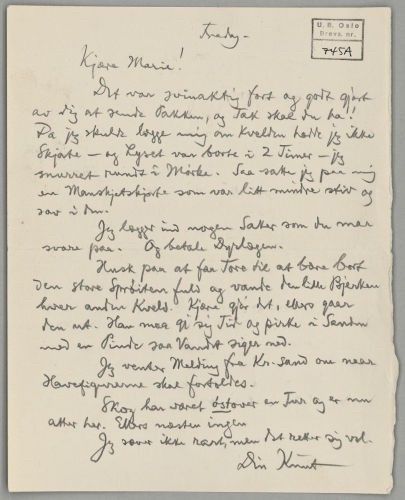 Tirsdag -
U. B. Oslo
Brevs. nr.
745A
Kjære Marie!
Det var svinaktig fort og godt gjort
av dig at sende Pakken, og Tak skal du ha!!
Da jeg skulde lægge mig om Kvelden hadde jeg ikke
Skjorte – og Lyset var borte i 2 Timer – jeg
snurret rundt i Mørke. Saa satte jeg paa mig
en Manskjetskjorte som var litt mindre stiv og
sov i den.
Jeg lægger ind nogen Saker som du maa
svare paa. Og betale Dyrlægen.
Husk paa at faa Tore til at bære bort
den store Sprøiten fuld og vande den lille Bjerken
hver anden Kveld. Kjære gjør det, ellers gaar
den ut. Han maa gi sig Tid og pirke i Sanden
med en Pinde saa Vandet siger ned.
Jeg venter Melding fra Kr.sand om naar
Havefigurerne skal forlædes.
Skog har været østover en Tur og er nu
atter her. Ellers næsten ingen
Jeg sover ikke rart, men det retter sig vel.
Din Knut